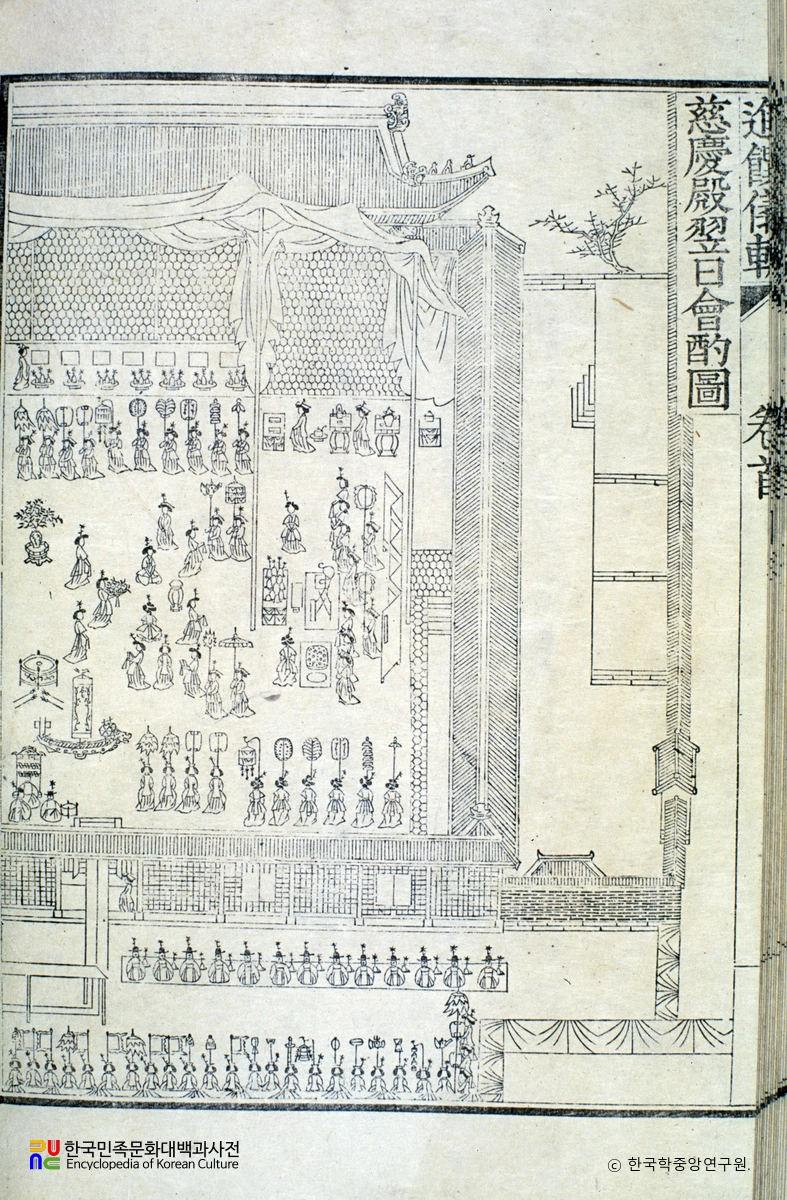 進饌儀軌
卷首
慈慶殿翌日會酌圖
한국민족문화대백과사전
Encyclopedia of Korean Culture
© 한국학중앙연구원.